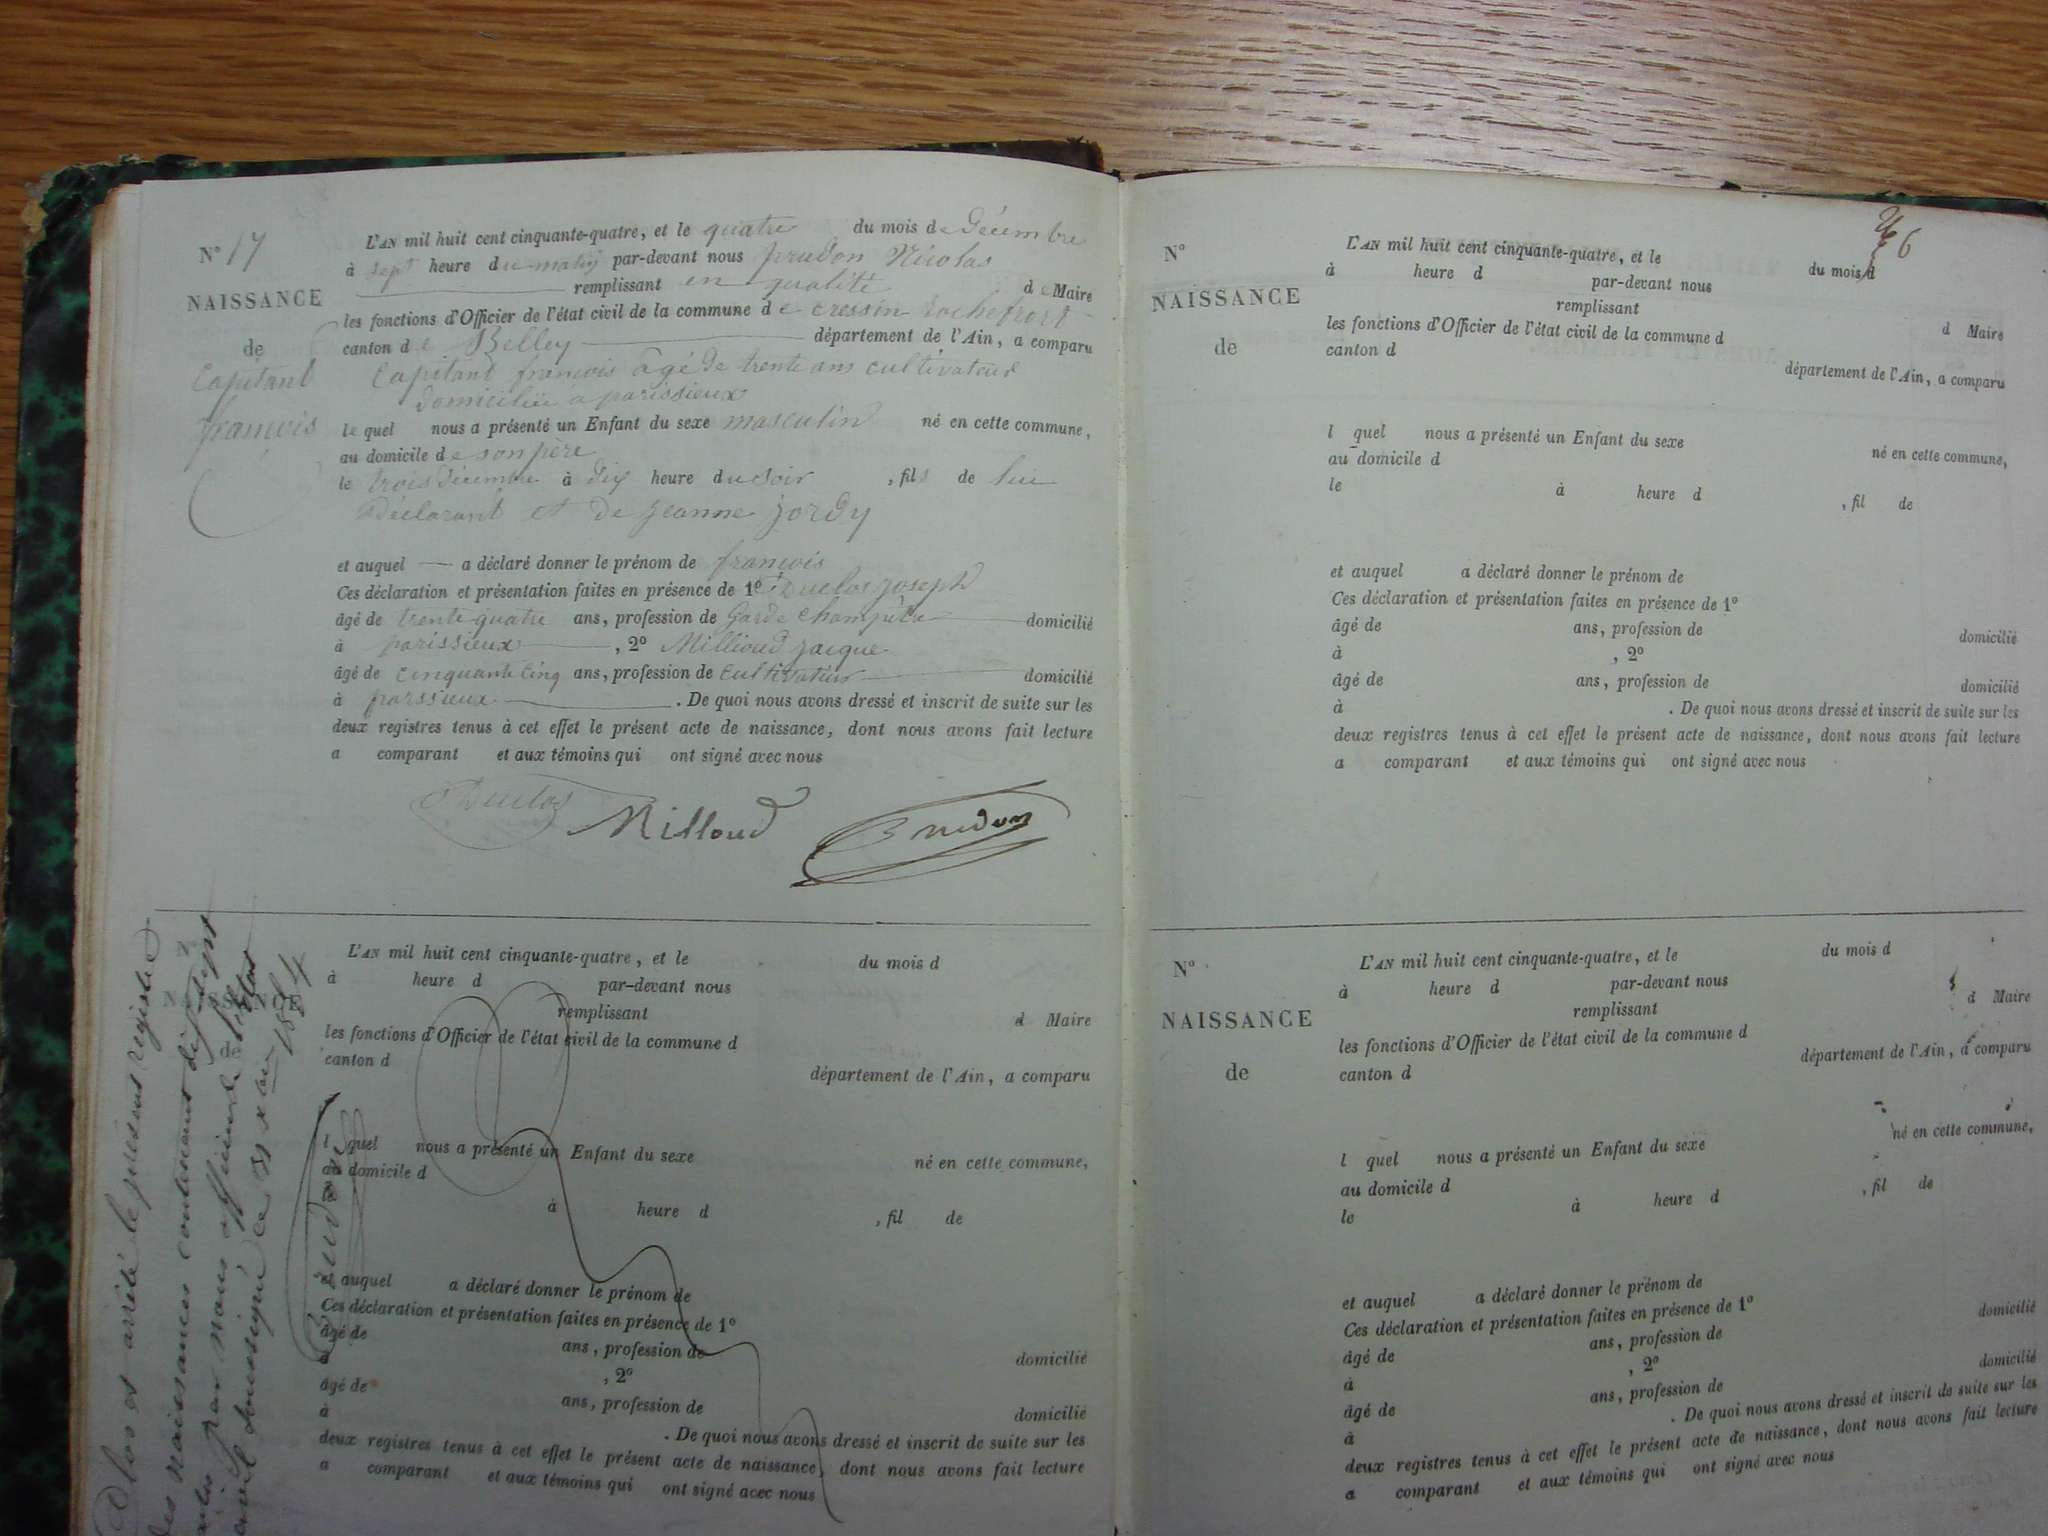 N° 17
NAISSANCE
de
Capitant
francois
L'AN mil huit cent cinquante-quatre, et le quatre du mois de Décembre
à sept heure du matin par-devant nous prudon Nicolas
remplissant en qualité de Maire
les fonctions d'Officier de l'état civil de la commune de cressin rochefort
canton de Belley département de l'Ain, a comparu
Capitant francois agé de trente ans cultivateur
domicilié a parissieux
le quel nous a présenté un Enfant du sexe masculin né en cette commune,
au domicile de son père
le trois Décembre à Dix heure du soir , fils de lui
Déclarant et de jeanne jordy
et auquel a déclaré donner le prénom de francois
Ces déclaration et présentation faites en présence de 1° Duclos joseph
âgé de trente quatre ans, profession de Garde Champêtre domicilié
à parissieux , 2° Millioud jacque
âgé de cinquante cinq ans, profession de cultivateur domicilié
à parssieux . De quoi nous avons dressé et inscrit de suite sur les
deux registres tenus à cet effet le présent acte de naissance, dont nous avons fait lecture
a comparant et aux témoins qui ont signé avec nous
Duclos Milloud Prudon
NAISSANCE
de
L'AN mil huit cent cinquante-quatre, et le du mois d
à heure d par-devant nous
remplissant d Maire
les fonctions d'Officier de l'état civil de la commune d
canton d département de l'Ain, a comparu
l quel nous a présenté un Enfant du sexe né en cette commune,
au domicile d
à heure d , fil de
et auquel a déclaré donner le prénom de
Ces déclaration et présentation faites en présence de 1°
âgé de ans, profession de domicilié
à , 2°
âgé de ans, profession de domicilié
à . De quoi nous avons dressé et inscrit de suite sur les
deux registres tenus à cet effet le présent acte de naissance, dont nous avons fait lecture
a comparant et aux témoins qui ont signé avec nous
Clos et arrêté le présent registre
des naissances contenant dix sept
actes par nous officier de l'état
civil soussigné ce 31 Xbre 1854
Prudon
6
N°
NAISSANCE
de
L'AN mil huit cent cinquante-quatre, et le du mois d
à heure d par-devant nous
remplissant d Maire
les fonctions d'Officier de l'état civil de la commune d
canton d département de l'Ain, a comparu
l quel nous a présenté un Enfant du sexe né en cette commune,
au domicile d
le à heure d , fil de
et auquel a déclaré donner le prénom de
Ces déclaration et présentation faites en présence de 1°
âgé de ans, profession de domicilié
à , 2°
âgé de ans, profession de domicilié
à . De quoi nous avons dressé et inscrit de suite sur les
deux registres tenus à cet effet le présent acte de naissance, dont nous avons fait lecture
a comparant et aux témoins qui ont signé avec nous
N°
NAISSANCE
de
L'AN mil huit cent cinquante-quatre, et le du mois d
à heure d par-devant nous
remplissant d Maire
les fonctions d'Officier de l'état civil de la commune d
canton d département de l'Ain, a comparu
l quel nous a présenté un Enfant du sexe né en cette commune,
au domicile d
le à heure d , fil de
et auquel a déclaré donner le prénom de
Ces déclaration et présentation faites en présence de 1°
âgé de ans, profession de domicilié
à , 2°
âgé de ans, profession de domicilié
à . De quoi nous avons dressé et inscrit de suite sur les
deux registres tenus à cet effet le présent acte de naissance, dont nous avons fait lecture
a comparant et aux témoins qui ont signé avec nous